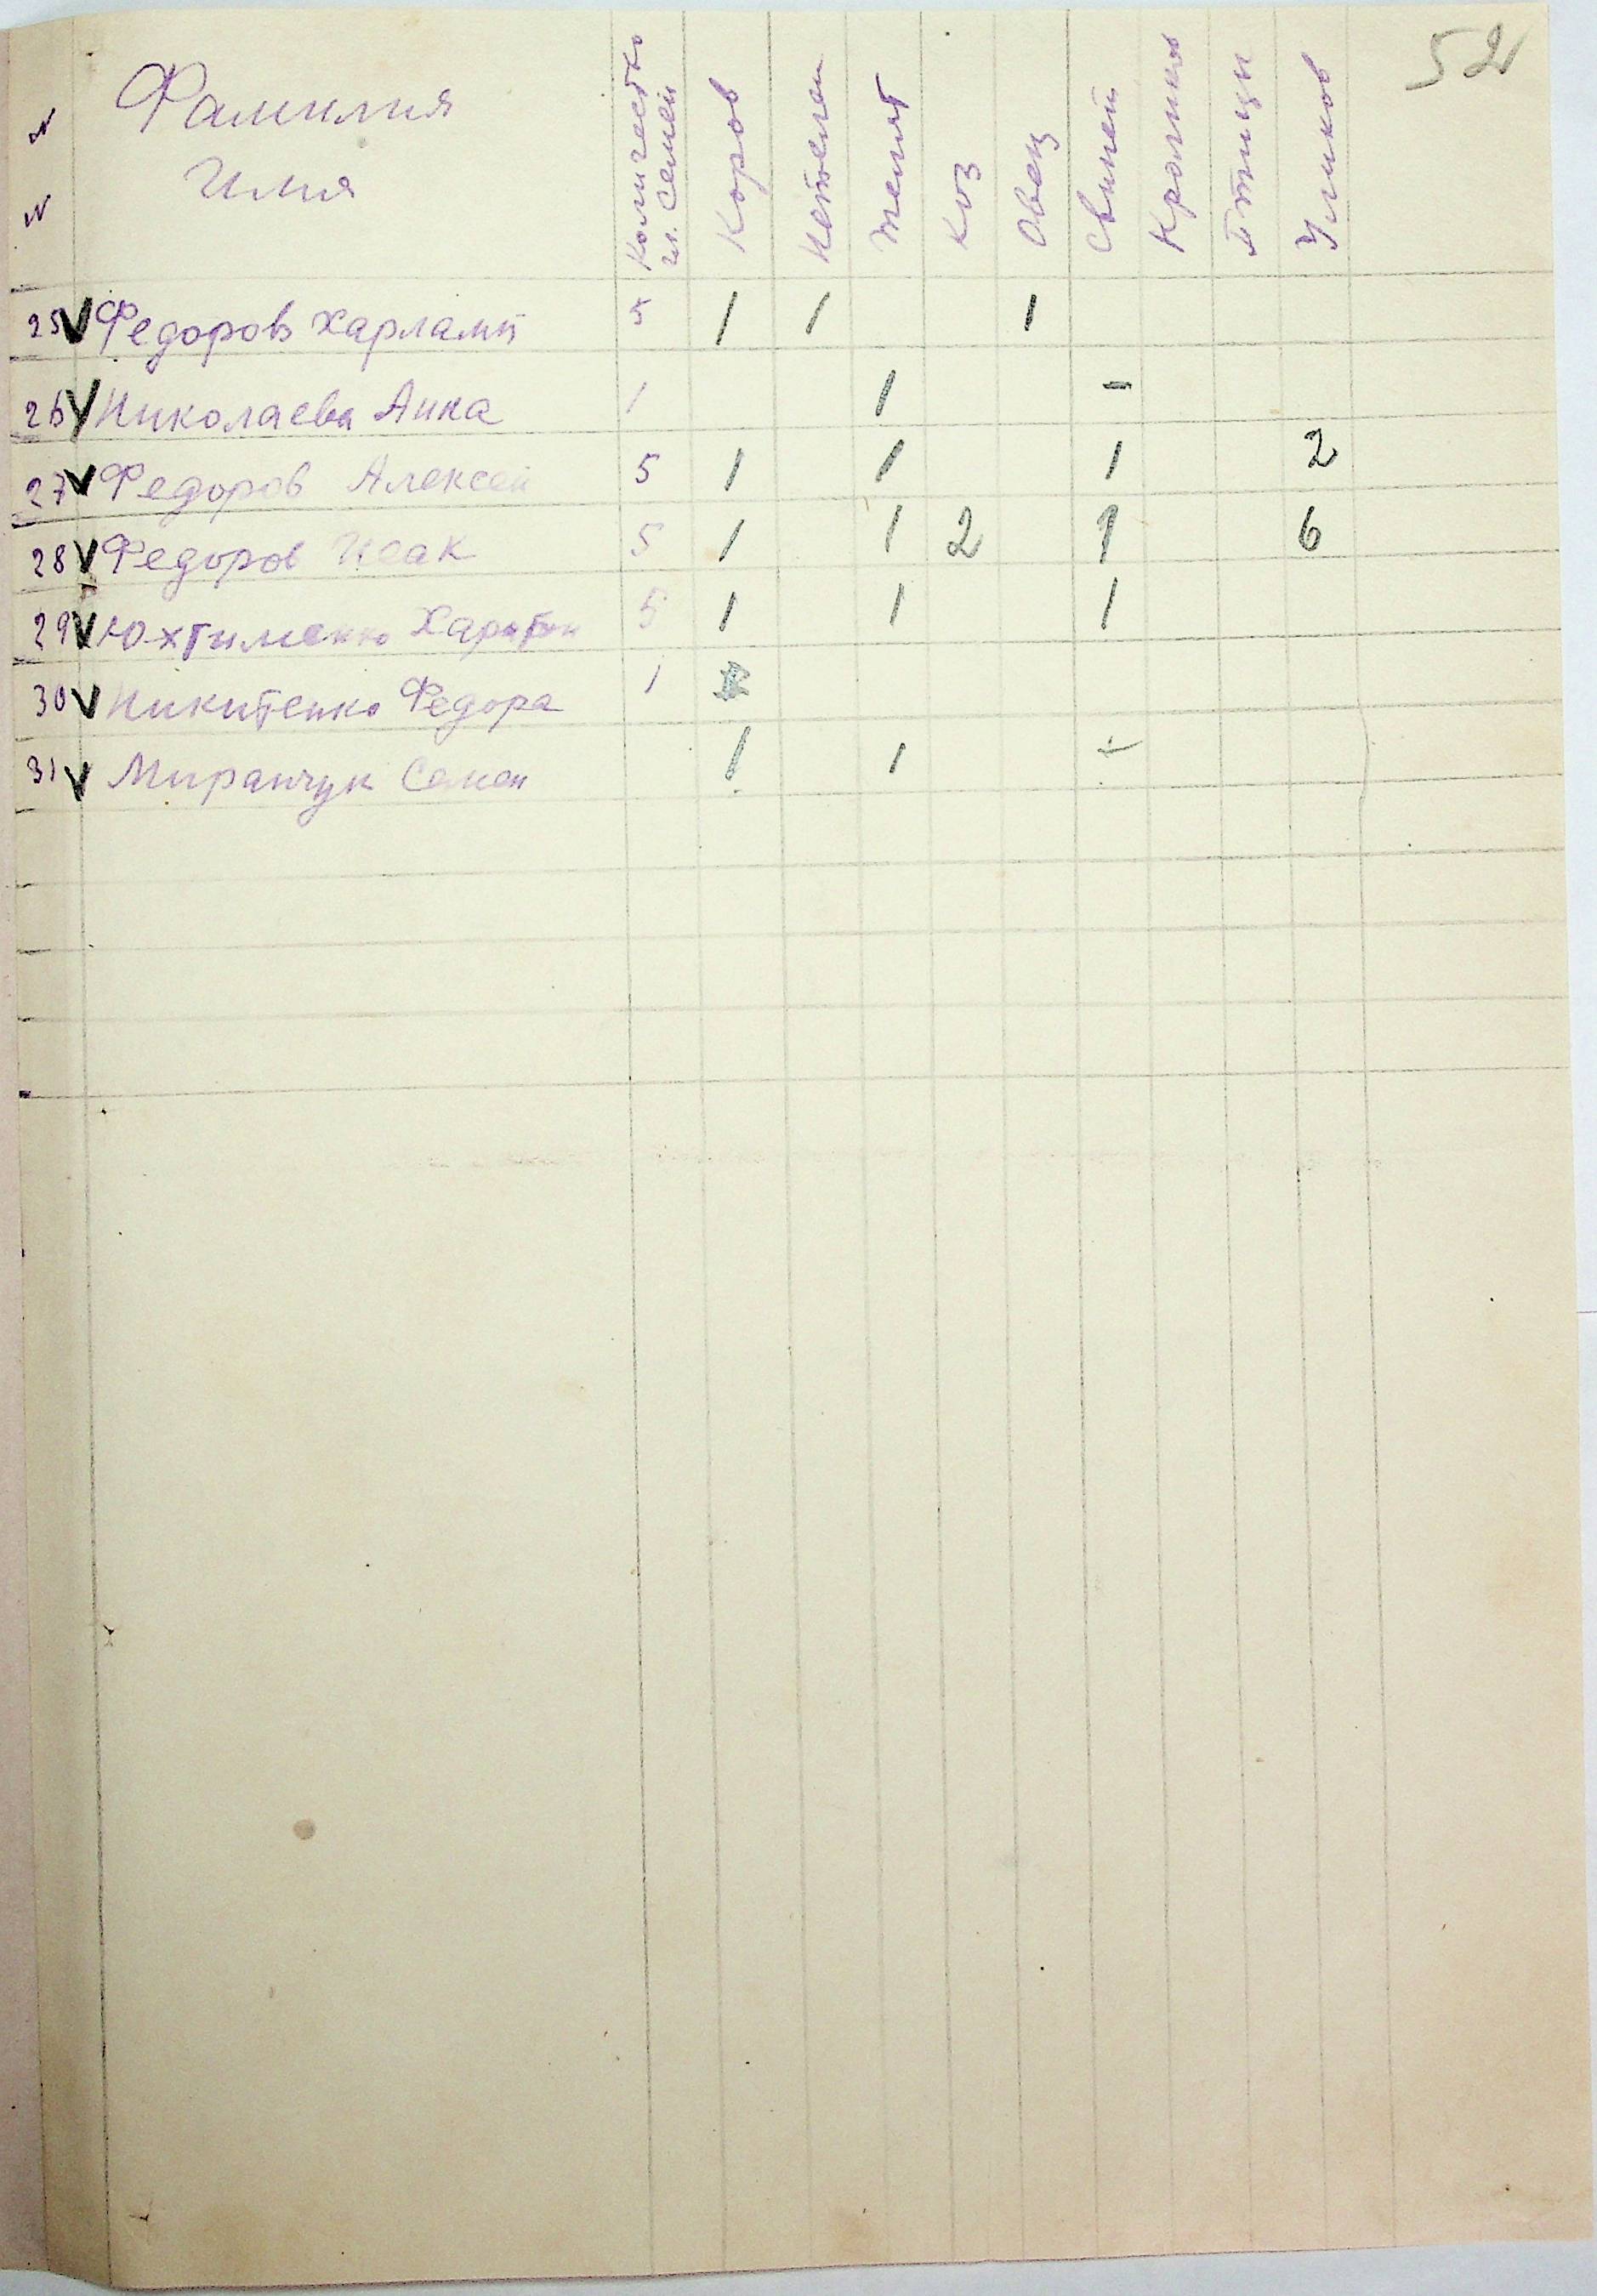 52
N N Фамилия Имя Количество чл. семей Коров Нетелей Телят Коз Овец Свиней Кроликов Птицы Уликов
25 V Федоров Харламп 5 1 1 1
26 V Николаева Анна 1 1 -
27 V Федоров Алексей 5 1 1 1 2
28 V Федоров Исак 5 1 1 2 1 6
29 V Юхтименко Харитон 5 1 1 1
30 V Никитенко Федора 1
31 V Миранчук Семен 1 1